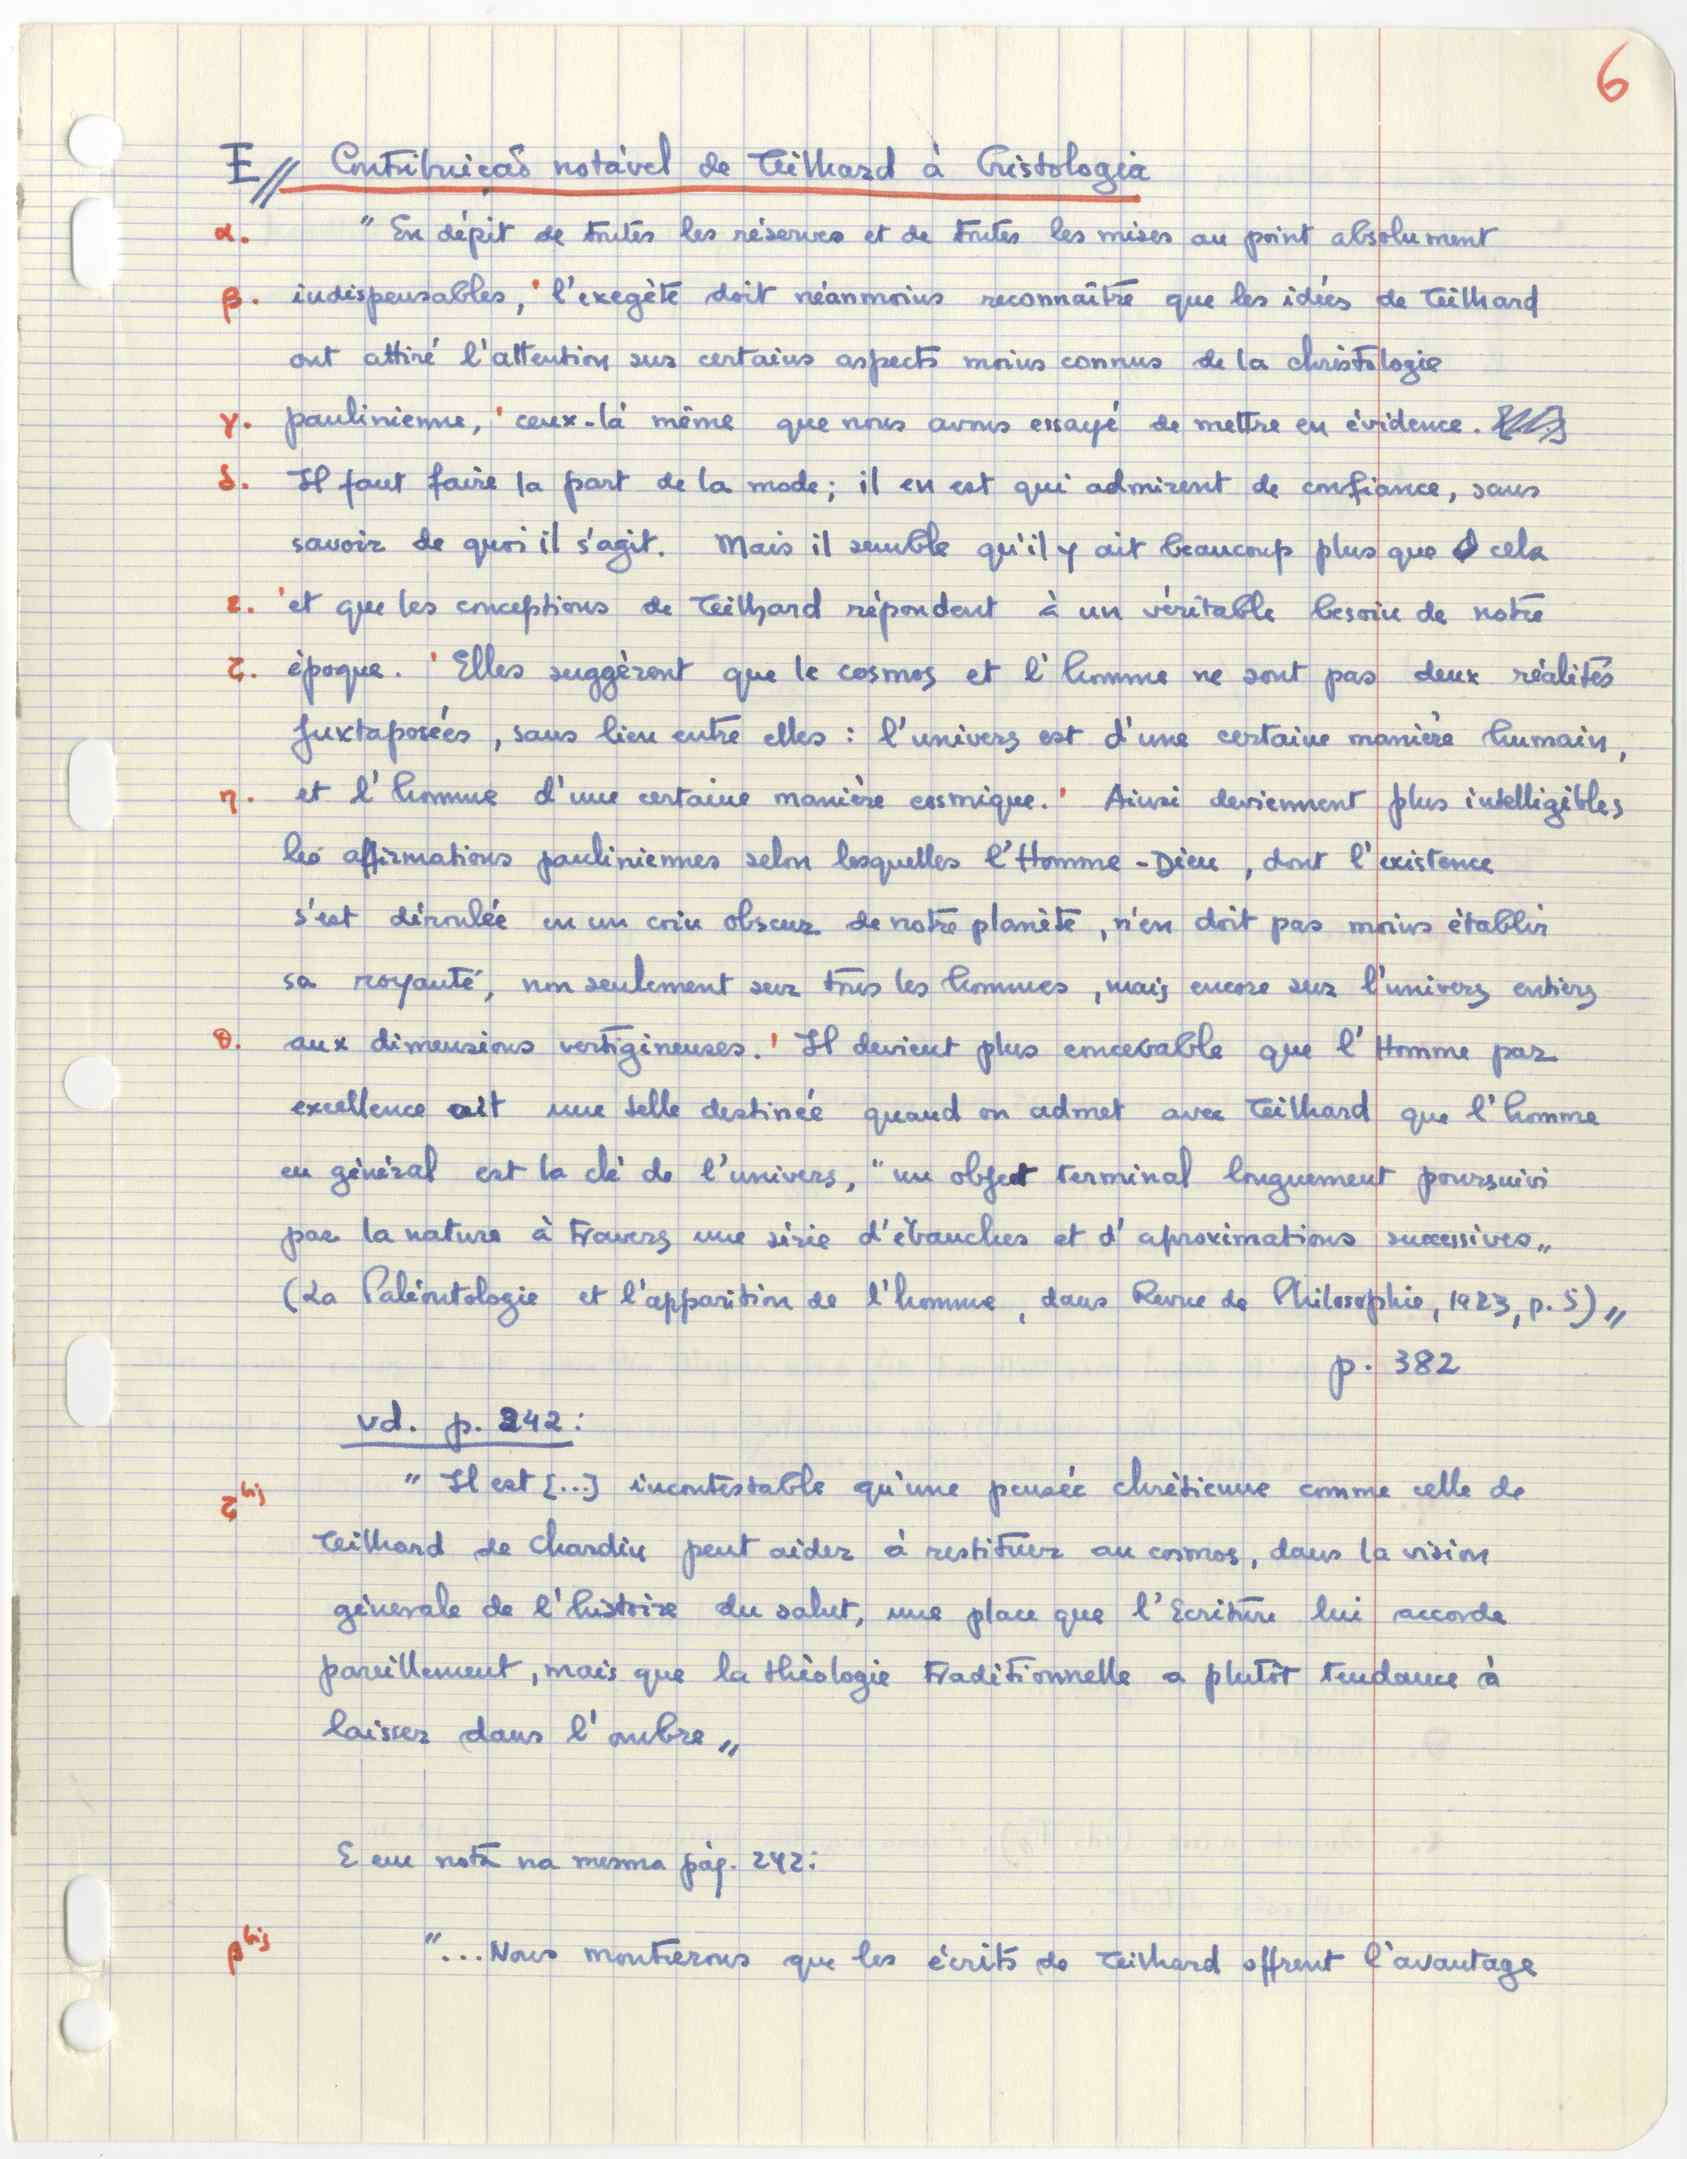 6
E// Contribuição notável de Teilhard à Cristologia
α. " En dépit de toutes les réserves et de toutes les mises au point absolument
β. indispensables, ' l'exegète doit néanmoins reconnaître que les idées de Teilhard
ont attiré l'attention sur certains aspects moins connus de la christologie
γ. paulinienne, ' ceux-là même que nous avons essayé de mettre en évidence.
δ. Il faut faire la part de la mode; il en est qui admirent de confiance, sans
savoir de quoi il s'agit. Mais il semble qu'il y ait beaucoup plus que cela
ε. ' et que les conceptions de Teilhard répondent à un véritable besoin de notre
ζ. époque. ' Elles suggèrent que le cosmos et l'homme ne sont pas deux réalités
juxtaposées, sans lien entre elles : l'univers est d'une certaine manière humain,
η. et l'homme d'une certaine manière cosmique. ' Ainsi deviennent plus intelligibles
les affirmations pauliniennes selon lesquelles l'Homme-Dieu, dont l'existence
s'est déroulée en un coin obscur de notre planète, n'en doit pas moins établir
sa royauté, non seulement sur tous les hommes, mais encore sur l'univers entiers
θ. aux dimensions vertigineuses. ' Il devient plus concevable que l'Homme par
excellence ait une telle destinée quand on admet avec Teilhard que l'homme
en général est la clé de l'univers, "un objet terminal longuement poursuivi
par la nature à travers une série d'ébauches et d'aproximations successives„
(La Paléontologie et l'apparition de l'homme, dans Revue de Philosophie, 1923, p. 5)„
p. 382
vd. p. 242:
ζ bis " Il est [...] incontestable qu'une pensée chrétienne comme celle de
Teilhard de Chardin peut aider à restituer au cosmos, dans la vision
génerale de l'histoire du salut, une place que l'Ecriture lui accorde
pareillement, mais que la théologie traditionnelle a plutôt tendance à
laisser dans l'ombre„
E em nota na mesma pág. 242:
β bis "...Nous montrerons que les écrits de Teilhard offrent l'avantage